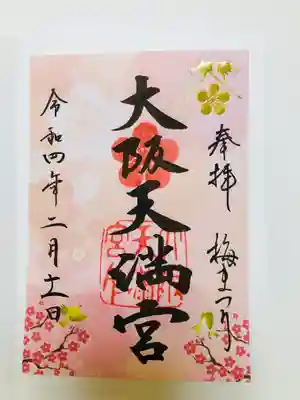 奉拝 梅
大阪天満宮
令和四年二月十一日